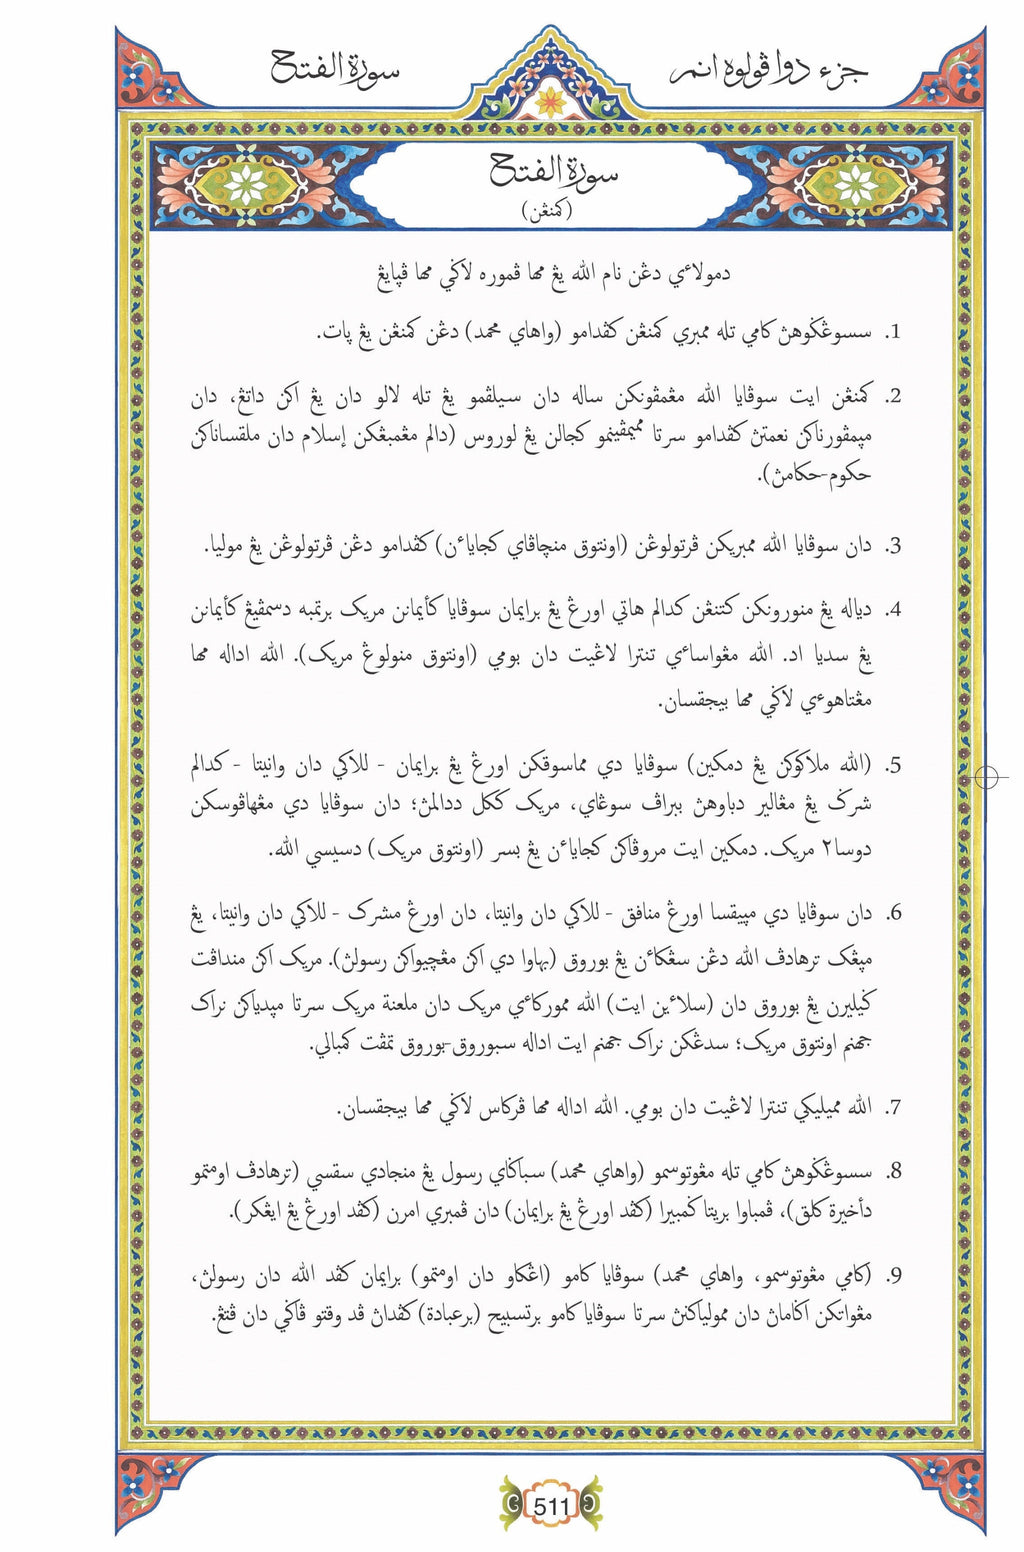 جزء دوا ڤولوه انم
سورة الفتح
سورة الفتح
(کمنڠن)
دمولاءي دڠن نام الله يڠ مها ڤموره لاݢي مها ڤڽايڠ
1. سسوڠݢوهڽ کامي تله ممبري کمنڠن کڤدامو (واهاي محمد) دڠن کمنڠن يڠ ڽات.
2. کمنڠن ايت سوڤايا الله مڠمڤونکن ساله دان سيلڤمو يڠ تله لالو دان يڠ اکن داتڠ، دان
مڽمڤورناکن نعمتڽ کڤدامو سرتا مميمڤينمو کجالن يڠ لوروس (دالم مڠمبڠکن إسلام دان ملقساناکن
حکوم-حکامڽ).
3. دان سوڤايا الله ممبريکن ڤرتولوڠن (اونتوق منچاڤاي کجاياءن) کڤدامو دڠن ڤرتولوڠن يڠ موليا.
4. دياله يڠ منورونکن کتنڠن کدالم هاتي اورڠ يڠ برايمان سوڤايا کأيمانن مريک برتمبه دسمڤيڠ کأيمانن
يڠ سديا اد. الله مڠواساءي تنترا لاڠيت دان بومي (اونتوق منولوڠ مريک). الله اداله مها
مڠتاهوءي لاݢي مها بيجقسان.
5. (الله ملاکوکن يڠ دمکين) سوڤايا دي مماسوقکن اورڠ يڠ برايمان - للاکي دان وانيتا - کدالم
شرݢ يڠ مڠالير دباوهڽ ببراڤ سوڠاي، مريک ککل ددالمڽ؛ دان سوڤايا دي مڠهاڤوسکن
دوسا٢ مريک. دمکين ايت مروڤاکن کجاياءن يڠ بسر (اونتوق مريک) دسيسي الله.
6. دان سوڤايا دي مڽيقسا اورڠ منافق - للاکي دان وانيتا، دان اورڠ مشرک - للاکي دان وانيتا، يڠ
مڽڠک ترهادڤ الله دڠن سڠکاءن يڠ بوروق (بهاوا دي اکن مڠچيواکن رسولڽ). مريک اکن منداڤت
ݢيليرن يڠ بوروق دان (سلاءين ايت) الله مموركاءي مريک دان ملعنة مريک سرتا مڽدياکن نراک
جهنم اونتوق مريک؛ سدڠکن نراک جهنم ايت اداله سبوروق-بوروق تمڤت کمبالي.
7. الله مميليکي تنترا لاڠيت دان بومي. الله اداله مها ڤرکاس لاݢي مها بيجقسان.
8. سسوڠݢوهڽ کامي تله مڠوتوسمو (واهاي محمد) سباݢاي رسول يڠ منجادي سقسي (ترهادڤ اومتمو
دأخيرة کلق)، ڤمباوا بريتا ݢمبيرا (کڤد اورڠ يڠ برايمان) دان ڤمبري امرن (کڤد اورڠ يڠ ايڠکر).
9. (کامي مڠوتوسمو، واهاي محمد) سوڤايا کامو (اڠکاو دان اومتمو) برايمان کڤد الله دان رسولڽ،
مڠواتکن اݢاماڽ دان ممولياکنڽ سرتا سوڤايا کامو برتسبيح (برعبادة) کڤداڽ ڤد وقتو ڤاݢي دان ڤتڠ.
511